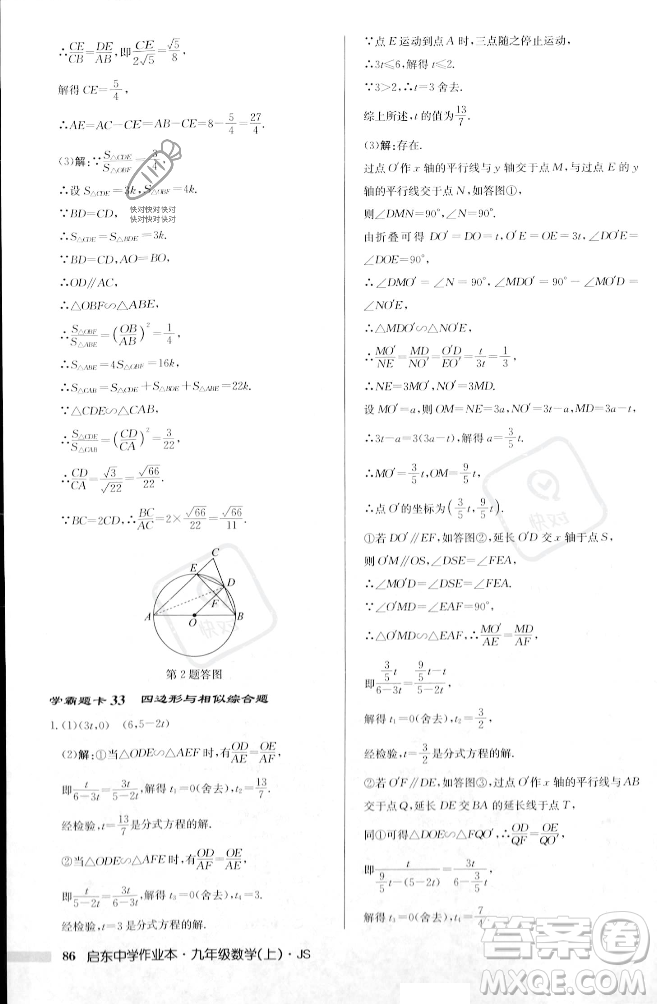 ∴CE/CB=DE/AB,即CE/2√5=√5/8,
解得CE=5/4,
∴AE=AC-CE=AB-CE=8-5/4=27/4.
(3)解:∵S△CDE/S△OBF=3/4,
∴设S△CDE=3k,
∵BD=CD,
∴S△BDE=S△CDE=3k.
快对快对快对
快对快对快对
∵BD=CD,AO=BO,
∴OD∥AC,
∴△OBF∽△ABE,
∴S△OBF/S△ABE=(OB/AB)²=1/4,
∴S△ABE=4S△OBF=16k,
∴S△CAB=S△CDE+S△BDE+S△ABE=22k.
∵△CDE∽△CAB,
∴S△CDE/S△CAB=(CD/CA)²=3/22,
∴CD/CA=√3/√22=√66/22.
∵BC=2CD,∴BC/AC=2×√66/22=√66/11.
C
E
D
F
A
O
B
第2题答图
学霸题卡33 四边形与相似综合题
1.(1)(3t,0) (6,5-2t)
(2)解:①当△ODE∽△AEF时,有OD/AE=OE/AF,
即t/6-3t=3t/5-2t,解得t₁=0(舍去),t₂=13/7.
经检验,t=13/7是分式方程的解.
②当△ODE∽△AFE时,有OD/AF=OE/AE,
即t/5-2t=3t/6-3t,解得t₁=0(舍去),t₂=3.
经检验,t=3是分式方程的解.
∵点E运动到点A时,三点随之停止运动,
∴3t≤6,解得t≤2.
∵3>2,∴t=3舍去.
综上所述,t的值为13/7.
(3)解:存在.
过点O′作x轴的平行线与y轴交于点M,与过点E的y
轴的平行线交于点N,如答图①,
则∠DMN=90°,∠N=90°.
由折叠可得DO′=DO=t,O′E=OE=3t,∠DO′E=
∠DOE=90°,
∴∠DMO′=∠N=90°,∠MDO′=90°-∠MO′D=
∠NO′E,
∴△MDO′∽△NO′E,
∴MO′/NE=MD/NO′=O′D/EO′=t/3t=1/3,
∴NE=3MO′,NO′=3MD.
设MO′=a,则OM=NE=3a,O′N=3t-a,MD=3a-t,
∴3t-a=3(3a-t),解得a=3/5t,
∴MO′=3/5t,OM=9/5t,
∴点O′的坐标为(3/5t,9/5t).
①若DO′∥EF,如答图②,延长O′D交x轴于点S,
则MO′∥OS,∠DSE=∠AEF,
∴∠MO′D=∠DSE,
∴∠MO′D=∠AEF.
∵∠DMO′=∠EAF=90°,
∴△MDO′∽△AFE,∴MO′/AE=MD/AF,
即3/5t/6-3t=9/5t-t/5-2t,
解得t₁=0(舍去),t₂=3/2.
经检验,t=3/2是分式方程的解.
②若O′F∥DE,如答图③,过点O′作x轴的平行线与AB
交于点Q,延长DE交BA的延长线于点T,
同①可得△DOE∽△FQO′,∴OD/QF=OE/QO′,
即t/9/5t-(5-2t)=3t/6-3/5t,
解得t₁=0(舍去),
86 启东中学作业本·九年级数学(上)·JS